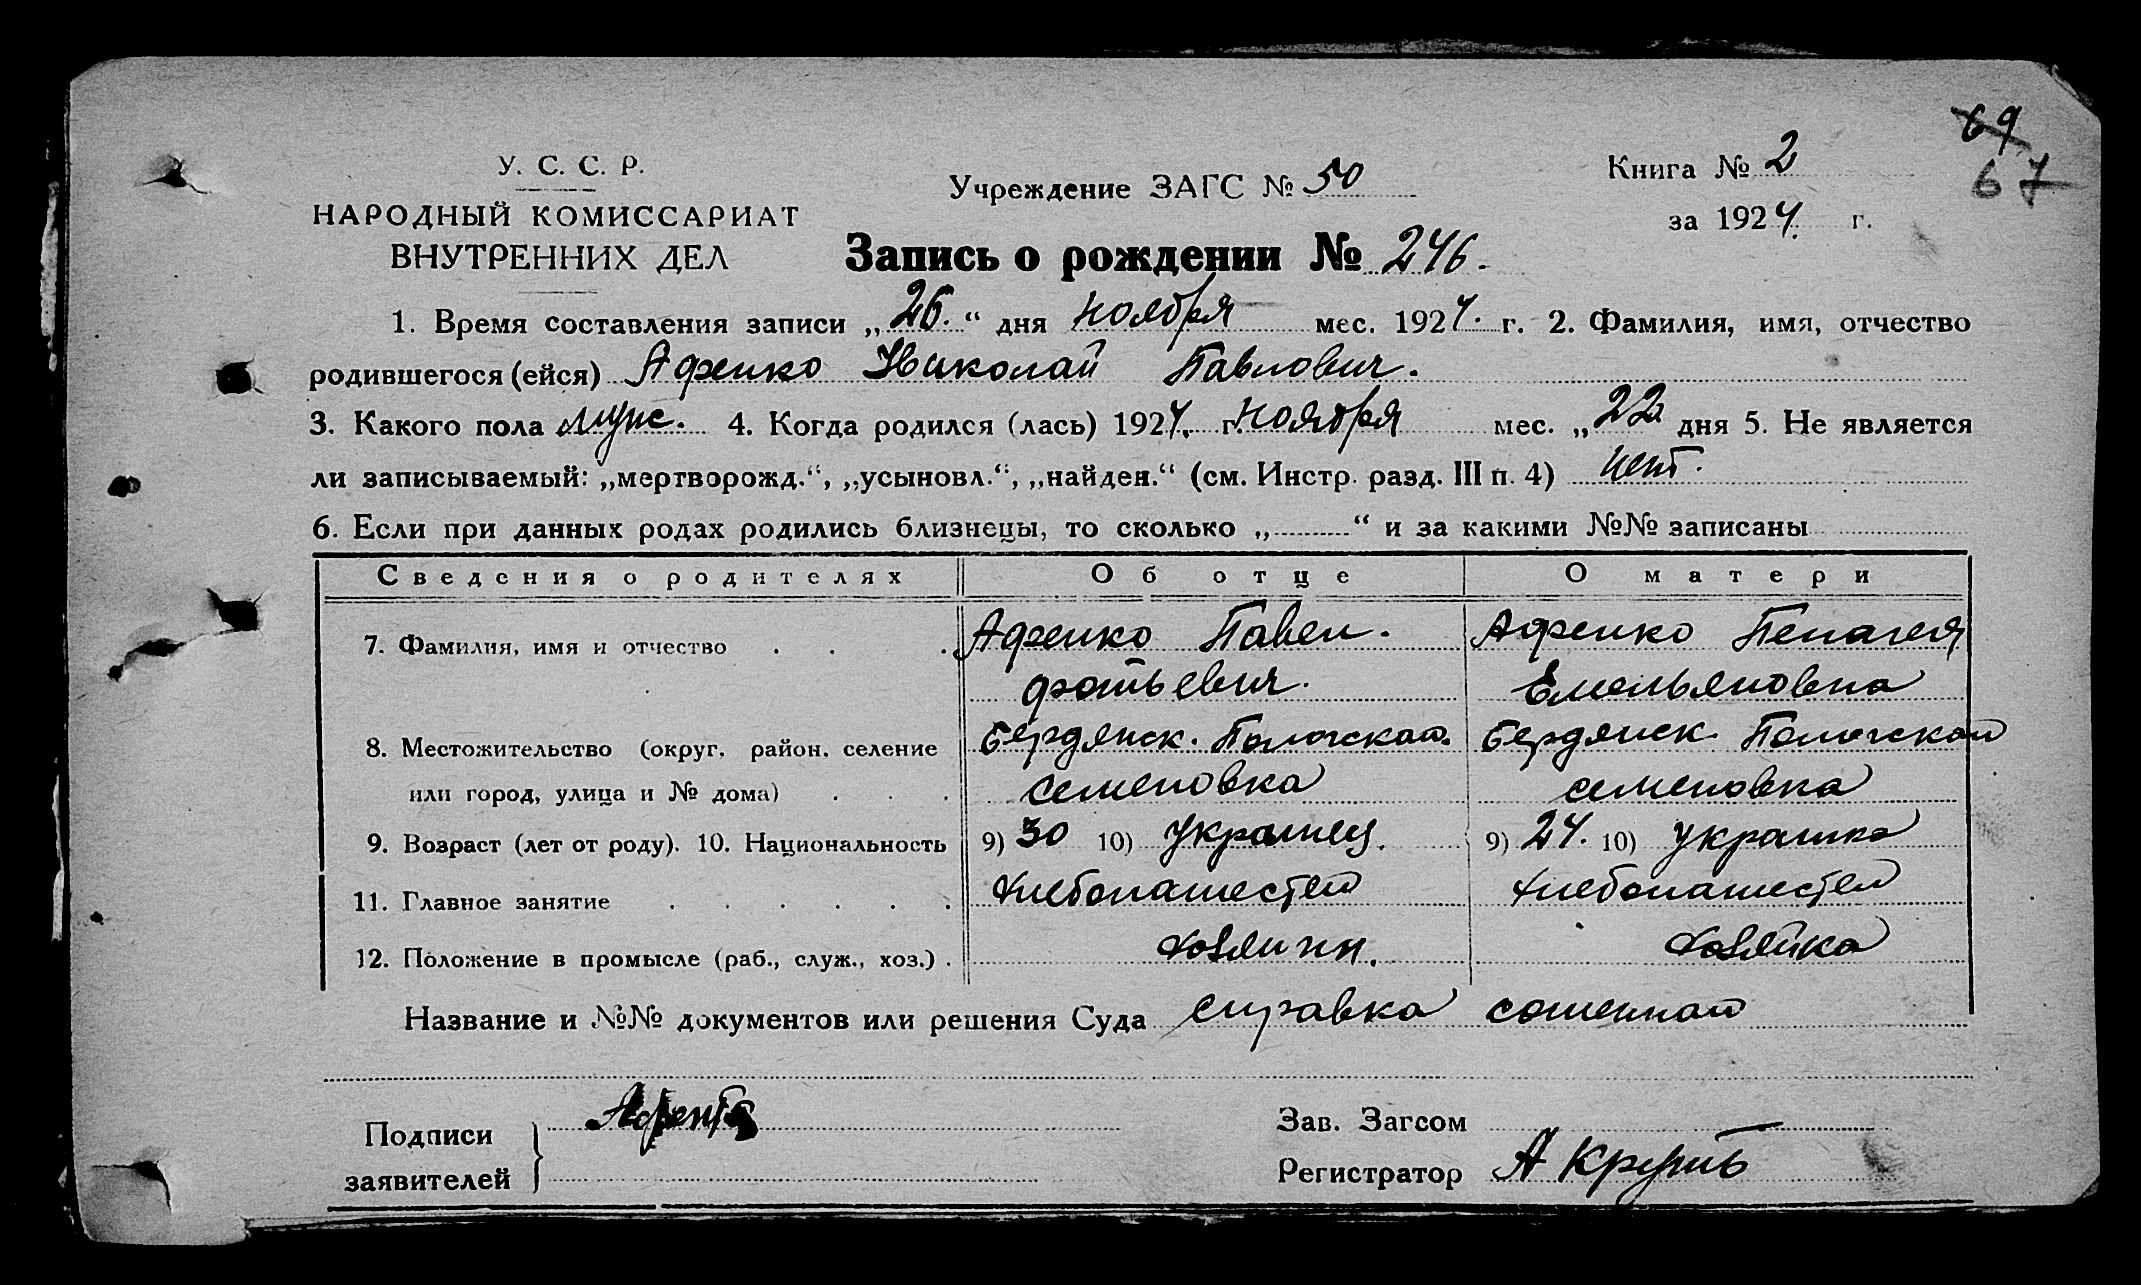 69
67
У. С. С. Р.
НАРОДНЫЙ КОМИССАРИАТ
ВНУТРЕННИХ ДЕЛ
Учреждение ЗАГС № 50
Книга № 2
за 1924. г.
Запись о рождении № 246.
1. Время составления записи „26.“ дня Ноября мес. 1924. г. 2. Фамилия, имя, отчество
родившегося (ейся) Афенко Николай Павлович.
3. Какого пола муж. 4. Когда родился (лась) 1924. г. Ноября мес. „22 дня 5. Не является
ли записываемый: „мертворожд.“, „усыновл.“, „найден.“ (см. Инстр. разд. III п. 4) нет.
6. Если при данных родах родились близнецы, то сколько „ “ и за какими №№ записаны
Сведения о родителях Об отце О матери
7. Фамилия, имя и отчество Афенко Павел. Афенко Пелагея
фотьевич. Емельяновна
8. Местожительство (округ, район, селение Бердянск. Пологской Бердянск. Пологской
или город, улица и № дома) семеновка семеновка
9. Возраст (лет от роду). 10. Национальность 9) 30 10) украинец. 9) 24. 10) украинка
11. Главное занятие хлебопашеством хлебопашеством
12. Положение в промысле (раб., служ., хоз.) хозяин. хозяйка
Название и №№ документов или решения Суда справка
Подписи
заявителей
Зав. Загсом
Регистратор А Круть